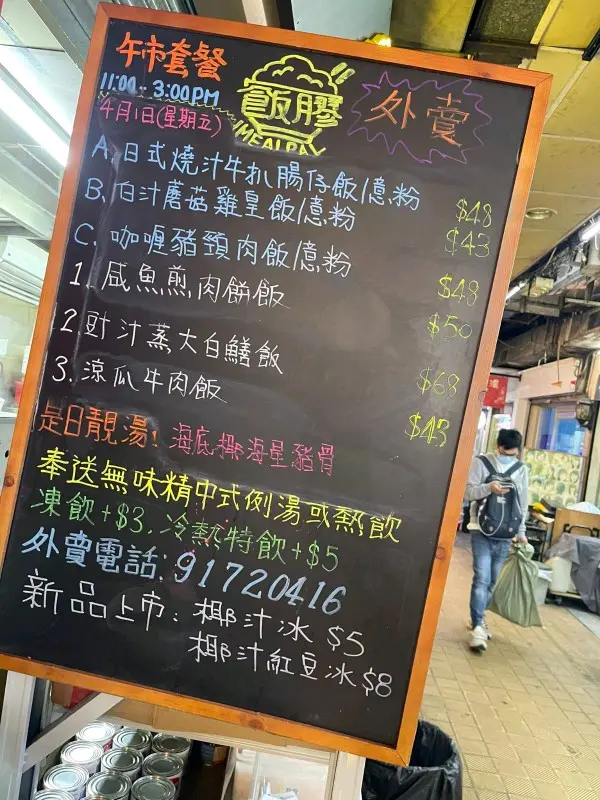 午市套餐
11:00 - 3:00PM
4月1日(星期五)
飯膠
外賣
A. 日式燒汁牛扒腸仔飯/意粉 $48
B. 白汁蘑菇雞皇飯/意粉 $43
C. 咖喱豬頸肉飯/意粉 $48
1. 咸魚煎肉餅飯 $50
2. 豉汁蒸大白鱔飯 $68
3. 涼瓜牛肉飯 $43
是日靚湯! 海底椰海星豬骨
奉送無味精中式例湯或熱飲
凍飲+$3, 冷熱特飲+$5
外賣電話: 91720416
新品上市: 椰汁冰 $5
椰汁紅豆冰 $8